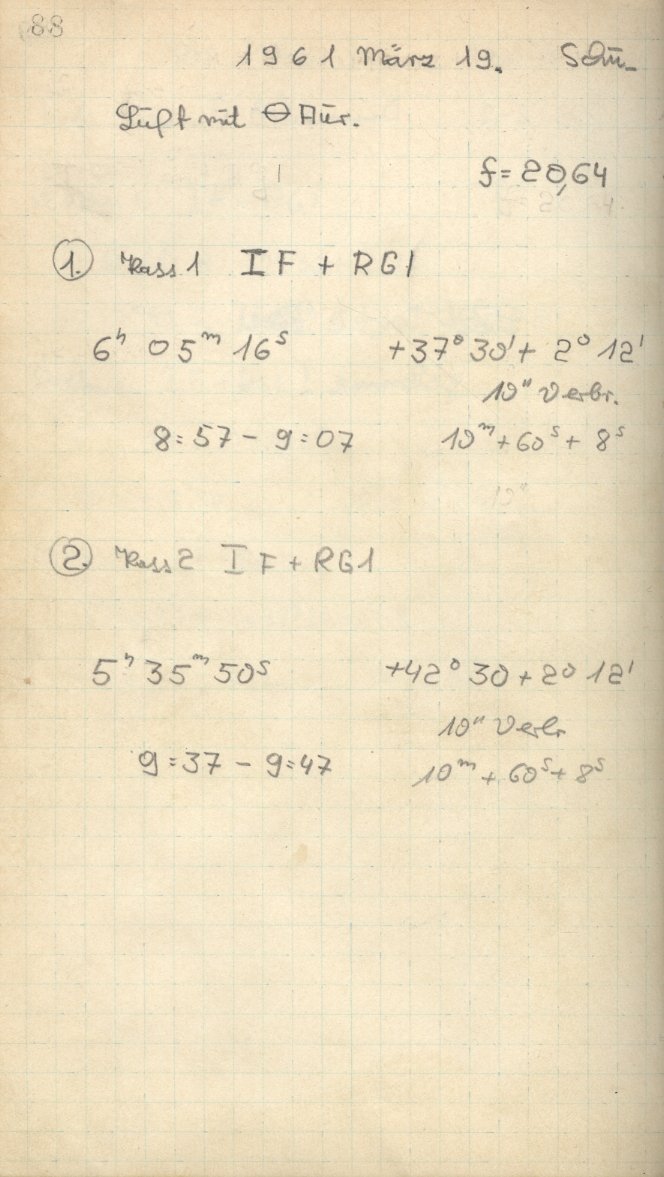 88
1961 März 19. Schü-
Luft mit Θ Aur.
f = 20,64
1. Kass 1 I F + RG1
6ʰ 05ᵐ 16ˢ +37° 30' + 2° 12'
10" Verbr.
8:57 - 9:07 10ᵐ + 60ˢ + 8ˢ
2. Kass 2 I F + RG1
5ʰ 35ᵐ 50ˢ +42° 30 + 2° 12'
10" Verbr
9:37 - 9:47 10ᵐ + 60ˢ + 8ˢ